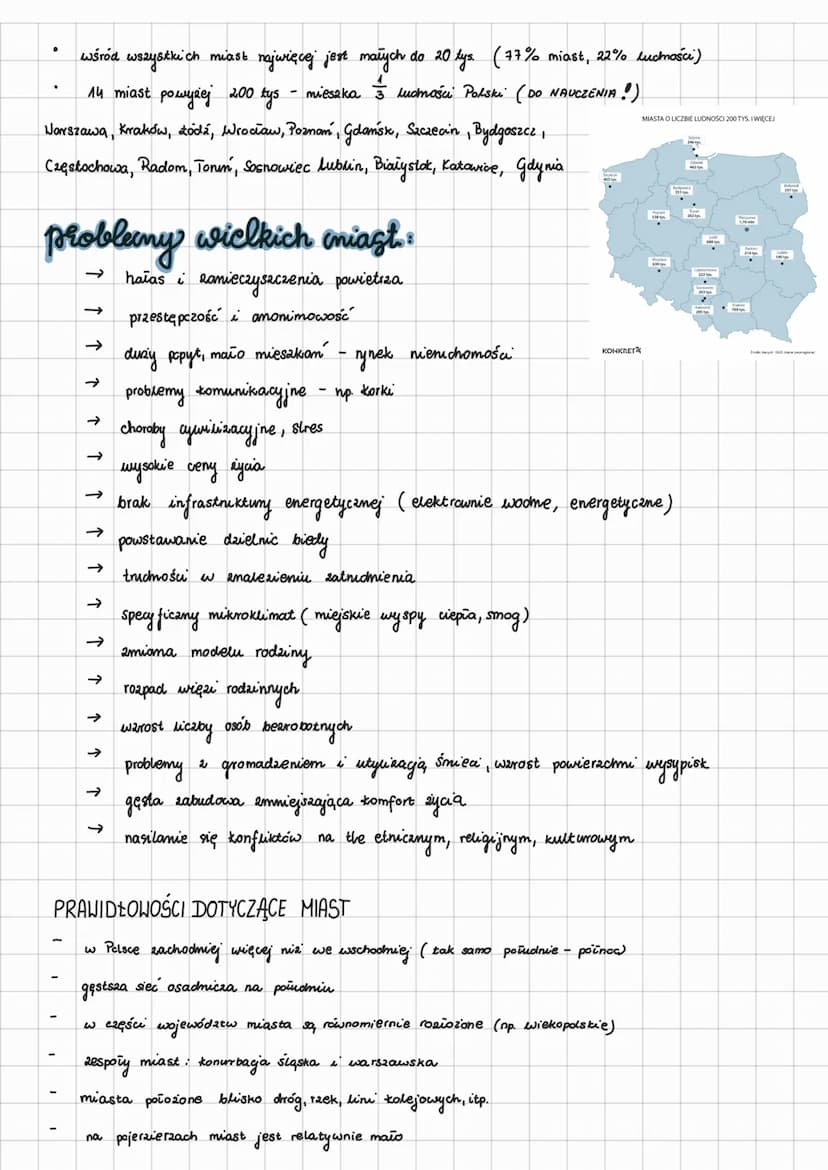 • wśród wszystkich miast najwięcej jest małych do 20 tys. (77% miast, 22% ludności)
• 14 miast powyżej 200 tys - mieszka 1/3 ludności Polski (DO NAUCZENIA!)
Warszawa, Kraków, Łódź, Wrocław, Poznań, Gdańsk, Szczecin, Bydgoszcz,
Częstochowa, Radom, Toruń, Sosnowiec Lublin, Białystok, Katowice, Gdynia
MIASTA O LICZBIE LUDNOŚCI 200 TYS. I WIĘCEJ
KONKRET24
problemy wielkich miast:
→ hałas i zanieczyszczenia powietrza
→ przestępczość i anonimowość
→ duży popyt, mało mieszkań - rynek nieruchomości
→ problemy komunikacyjne - np. korki
→ choroby cywilizacyjne, stres
→ wysokie ceny życia
→ brak infrastruktury energetycznej (elektrownie wodne, energetyczne)
→ powstawanie dzielnic biedy
→ trudności w znalezieniu zatrudnienia
→ specyficzny mikroklimat (miejskie wyspy ciepła, smog)
→ zmiana modelu rodziny
→ rozpad więzi rodzinnych
→ wzrost liczby osób bezrobotnych
→ problemy z gromadzeniem i utylizacją śmieci, wzrost powierzchni wysypisk
→ gęsta zabudowa zmniejszająca komfort życia
→ nasilanie się konfliktów na tle etnicznym, religijnym, kulturowym
PRAWIDŁOWOŚCI DOTYCZĄCE MIAST
- w Polsce zachodniej więcej niż we wschodniej (tak samo południe - północ)
- gęstsza sieć osadnicza na południu
- w części województw miasta są równomiernie rozłożone (np. wielkopolskie)
- zespoły miast: konurbacja śląska i warszawska
- miasta położone blisko dróg, rzek, linii kolejowych, itp.
- na pojezierzach miast jest relatywnie mało